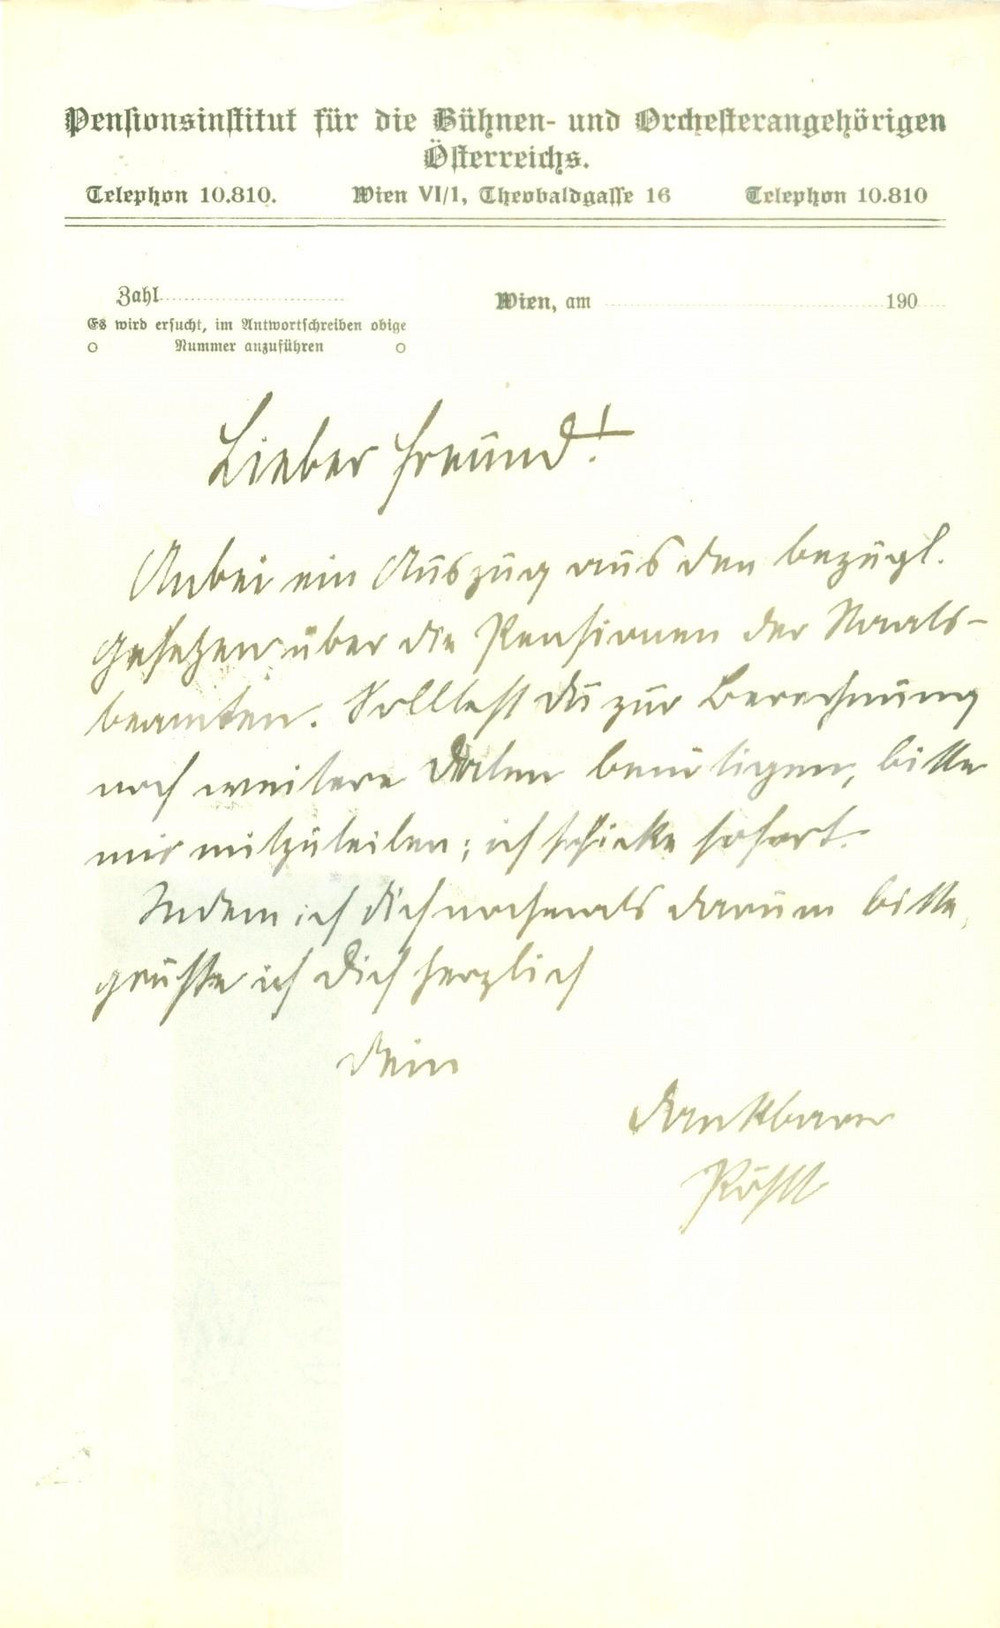 Pensionsinstitut für die Bühnen- und Orchesterangehörigen
Österreichs.
Telephon 10.810. Wien VI/1, Theobaldgasse 16 Telephon 10.810
Zahl
Wien, am 190
Es wird ersucht, im Antwortschreiben obige
Nummer anzuführen
Lieber Freund!
Anbei ein Auszug aus den bezügl.
Gesetzen über die Pensionen der Staats-
beamten. Solltest du zur Berechnung
noch weitere Daten benötigen, bitte
mir mitzuteilen; ich schicke sofort.
Indem ich dich nochmals darum bitte,
grüsse ich dich herzlich
dein
dankbarer